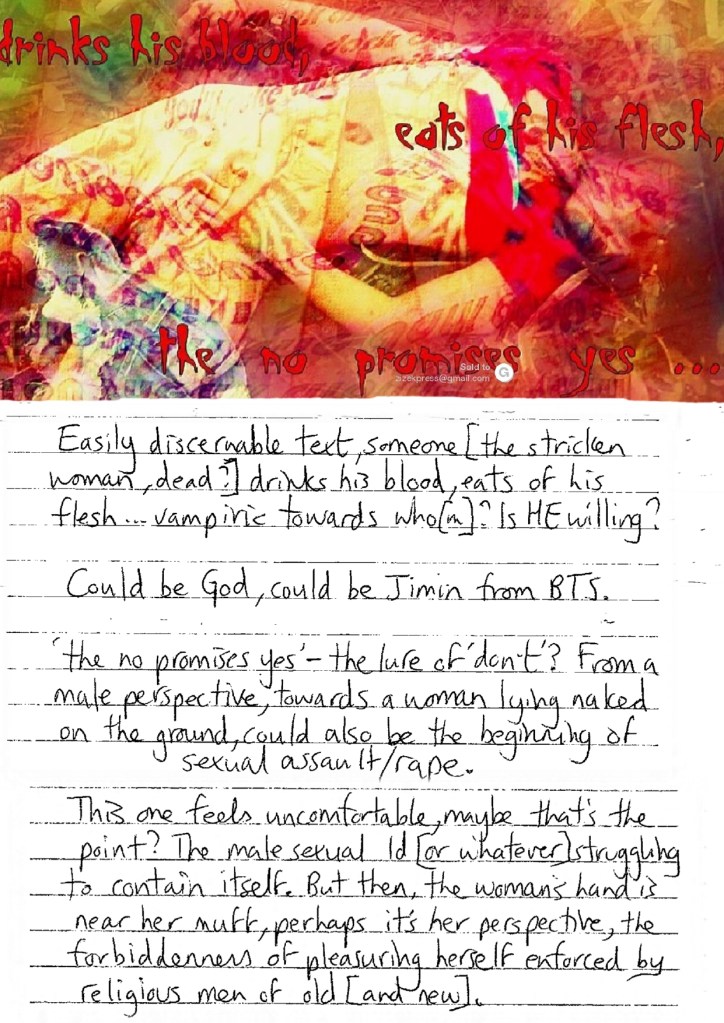 drinks his blood,
eats of his flesh,
the no promises yes ...
Sold to
azekpress@gmail.com
G
Easily discernable text, someone [the stricken
woman, dead?] drinks his blood, eats of his
flesh... vampiric towards who[m]? Is HE willing?
Could be God, could be Jimin from BTS.
'the no promises yes' - the lure of 'don't'? From a
male perspective, towards a woman lying naked
on the ground, could also be the beginning of
sexual assault/rape.
This one feels uncomfortable, maybe that's the
point? The male sexual Id [or whatever] struggling
to contain itself. But then, the woman's hand is
near her muff, perhaps it's her perspective, the
forbiddenness of pleasuring herself enforced by
religious men of old [and new].